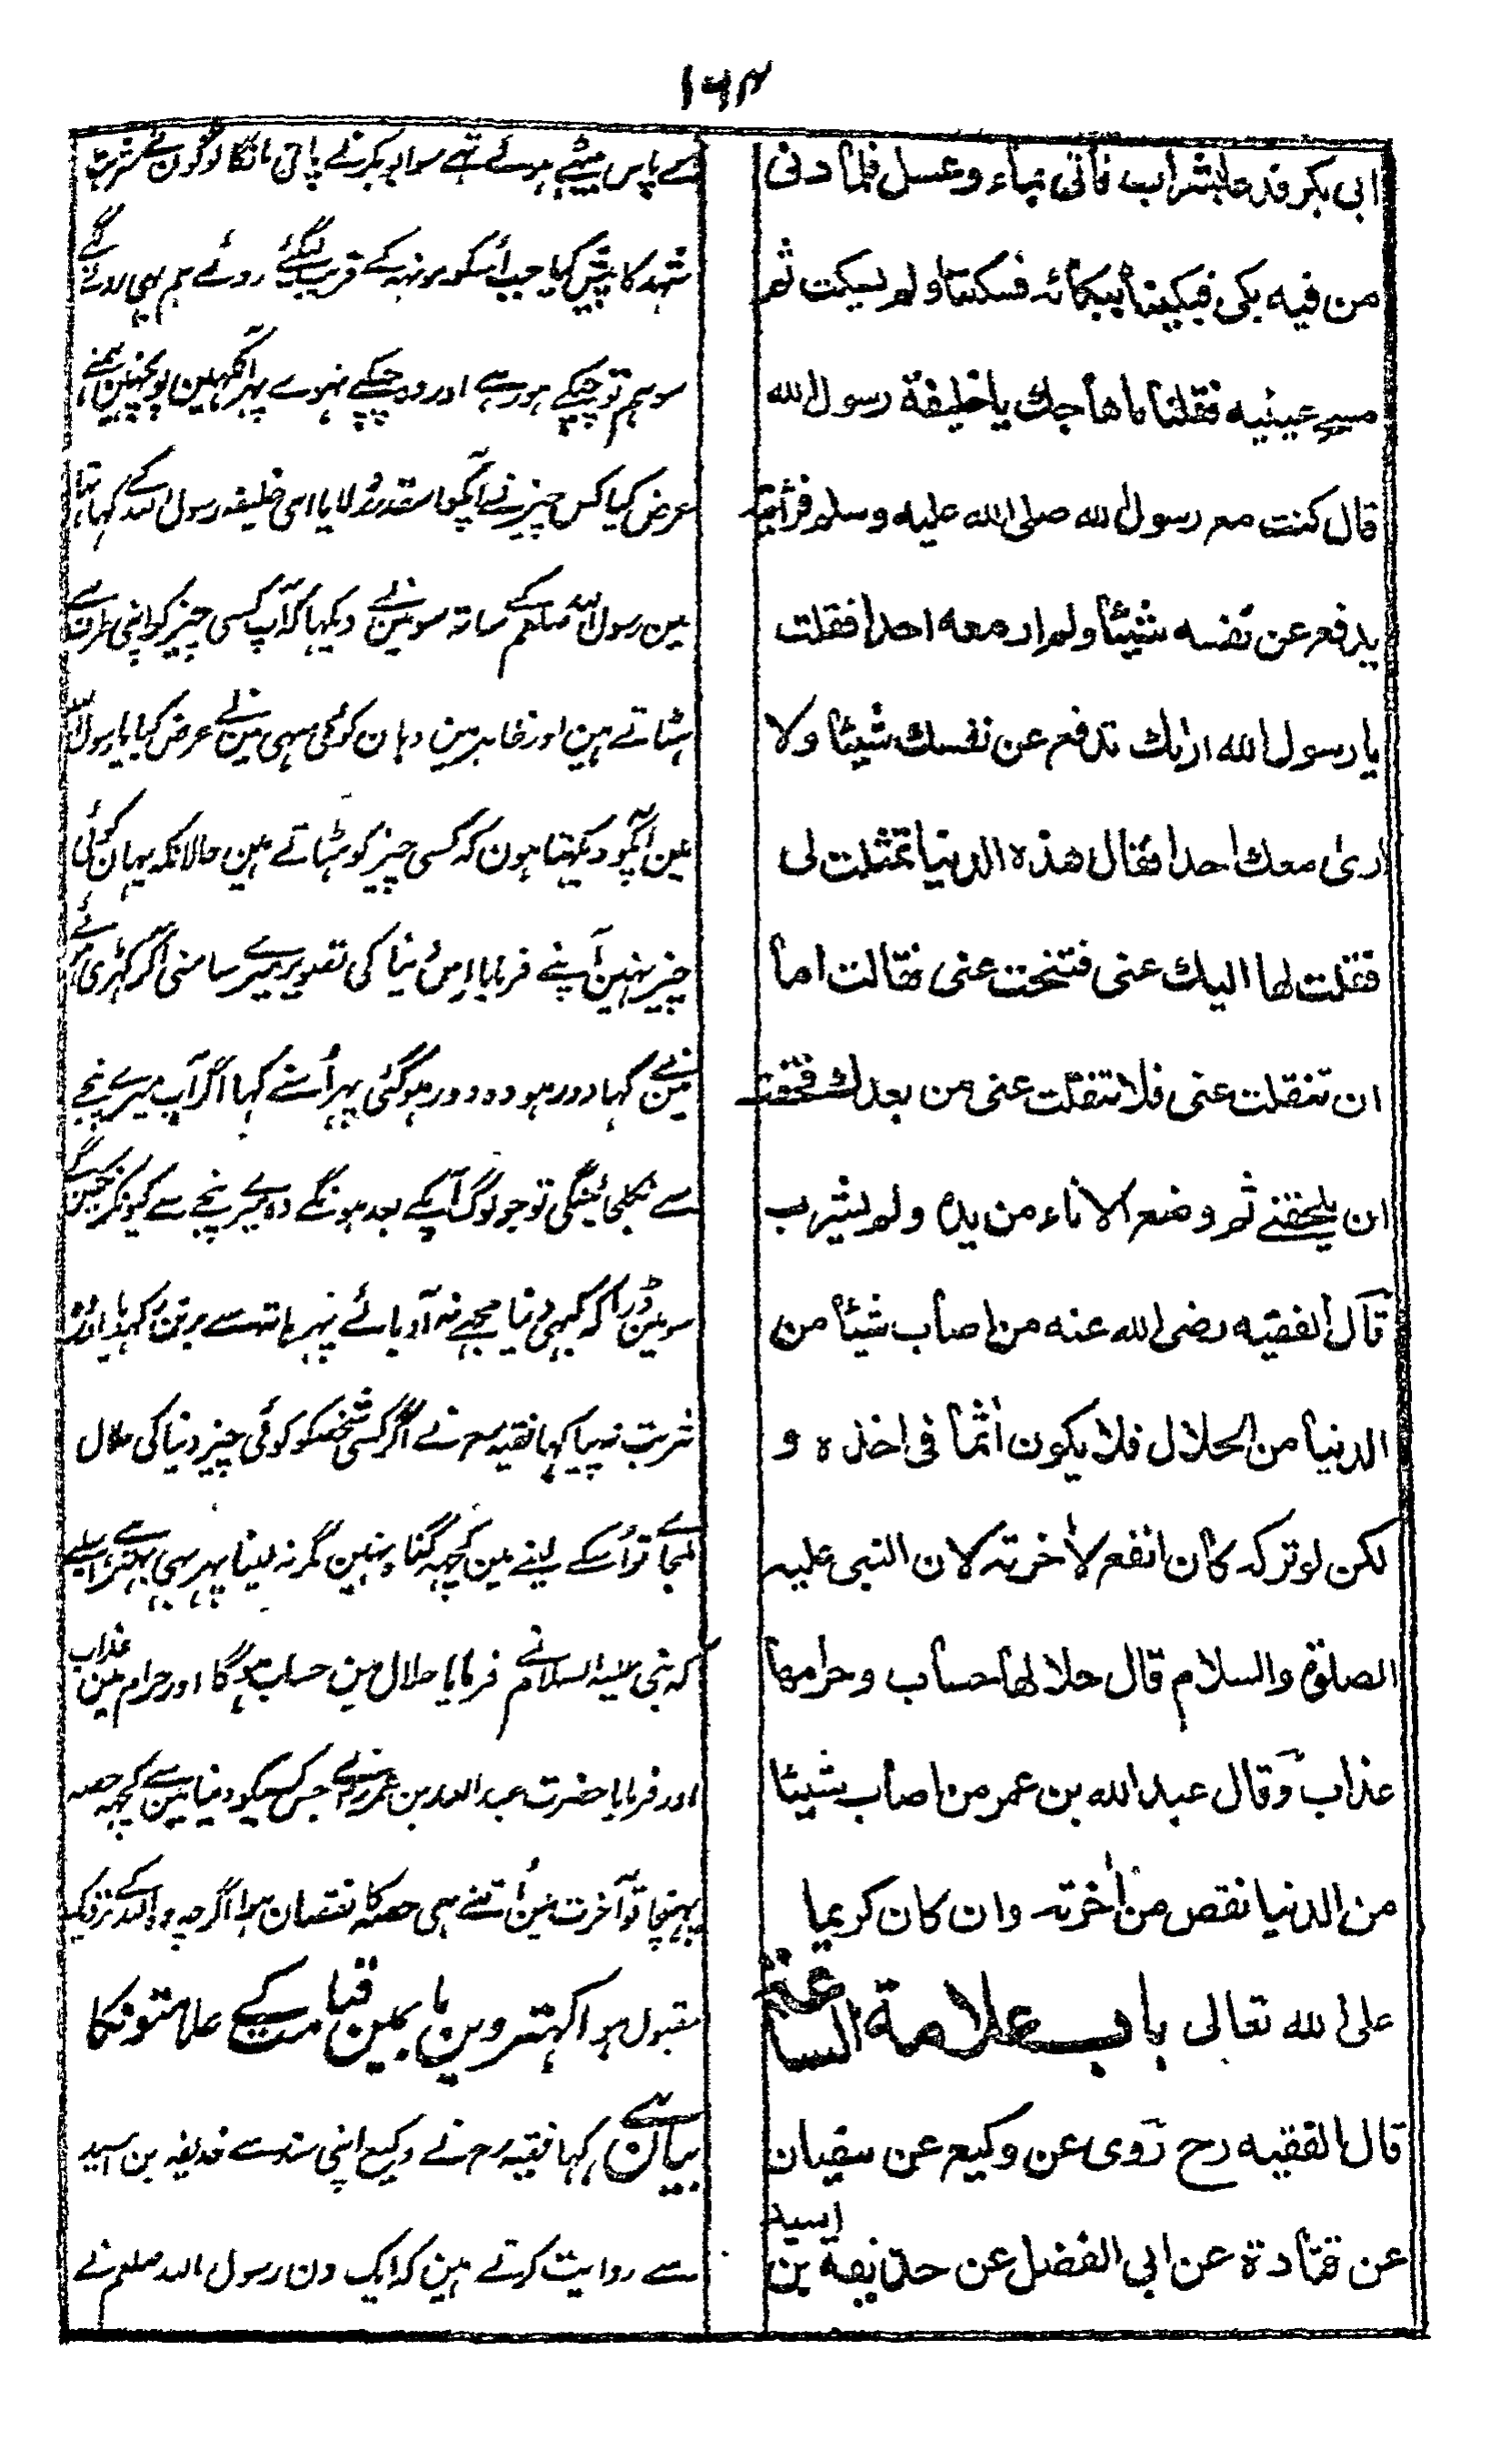 ۱۶۴
ابی بکر فدعا بشراب فأتی بماء وعسل فلما دنی
من فیه بکی فبکینا ببکائه فسکتنا ولم یسکت ثم
مسح عینیه فقلنا ما هاجك یا خلیفة رسول الله
قال کنت مع رسول الله صلی الله علیه وسلم فرأیته
یدفع عن نفسه شیئا ولم ار معه احدا فقلت
یا رسول الله ارٰىك تدفع عن نفسك شیئا ولا
اریٰ معك احدا فقال هذه الدنیا تمثلت لی
فقلت لها الیك عنی فتنحت عنی فقالت اما
ان تنفلت عنی فلا تنفلت عنی من بعدك فخفت
ان یلحقنے ثم وضع الاناء من یده ولم یشرب
قال الفقیه رضی الله عنه من اصاب شیئا من
الدنیا من الحلال فلا یکون اٰثما فی اخذه و
لکن لو ترکه کان انفع لاٰخرته لان النبی علیه
الصلوٰة والسلام قال حلالها حساب وحرامها
عذاب وقال عبد الله بن عمر من اصاب شیئا
من الدنیا نقص من اٰخرته وان کان کریما
علی الله تعالی باب علامة الساعة
قال الفقیه رح روی عن وکیع عن سفیان
عن قتادة عن ابی الفضل عن حذیفة بن اسید
کے پاس بیٹھے ہوئے تہے سو ابوبکر نے پانی مانگا لوگون نے شربت
شہد کا پیش کیا جب اُسکو مونہہ کے قریب لیگئے روئے ہم بھی رونے لگے
سو ہم تو چپکے ہو رہے اور وہ چپکے نہوے پہر آنکہین پونچھین ہمنے
عرض کیا کس چیز نے آپکو اسقدر رُلایا ای خلیفہ رسول اللہ کے کہا تہا
مین رسول اللہ صلعم کے ساتہ سو مینے دیکہا کہ آپ کسی چیز کو اپنی طرف سے
ہٹاتے ہین اور ظاہر مین وہان کوئی نہی مین نے عرض کیا یا رسول اللہ
مین آپکو دیکہتا ہون کہ کسی چیز کو ہٹاتے ہین حالانکہ یہان کوئی
چیز نہین آپنے فرمایا اِس دُنیا کی تصویر میرے سامنی آکر کہڑی ہوئے
مینے کہا دور ہو وہ دور ہوگئی پہر اُسنے کہا اگر آپ میرے پنجے
سے نکلجائینگے تو جو لوگ آپکے بعد ہونگے وہ میرے پنجے سے کیونکر بچینگے
سو مین ڈرا کہ کہہی دنیا مجہے نہ آدبائے پہر ہاتہہ سے برتن رکہدیا اور
شربت نہ پیا کہا فقیہ رح نے اگر کسی شخصکو کوئی چیز دنیا کی حلال
ملجا تو اُسکے لینے مین کچہہ گناہ نہین مگر نہ لینا پہر بہی بہتر ہے اسلیے
کہ نبی علیہ السلام نے فرمایا حلال مین حساب ہوگا اور حرام مین عذاب
اور فرمایا حضرت عبد اللہ بن عمر رض نے جس کسیکو دنیا مین سے کچہہ حصہ
پہنچا تو آخرت مین اُتنے ہی حصہ کا نقصان ہوا اگرچہ وہ اللہ کے نزدیک
مقبول ہو اکہتروین باب مین قیامت کے علامتونکا
بیان ہے کہا فقیہ رح نے وکیع اپنی سند سے حذیفہ بن اسید
سے روایت کرتے ہین کہ ایک دن رسول اللہ صلعم نے